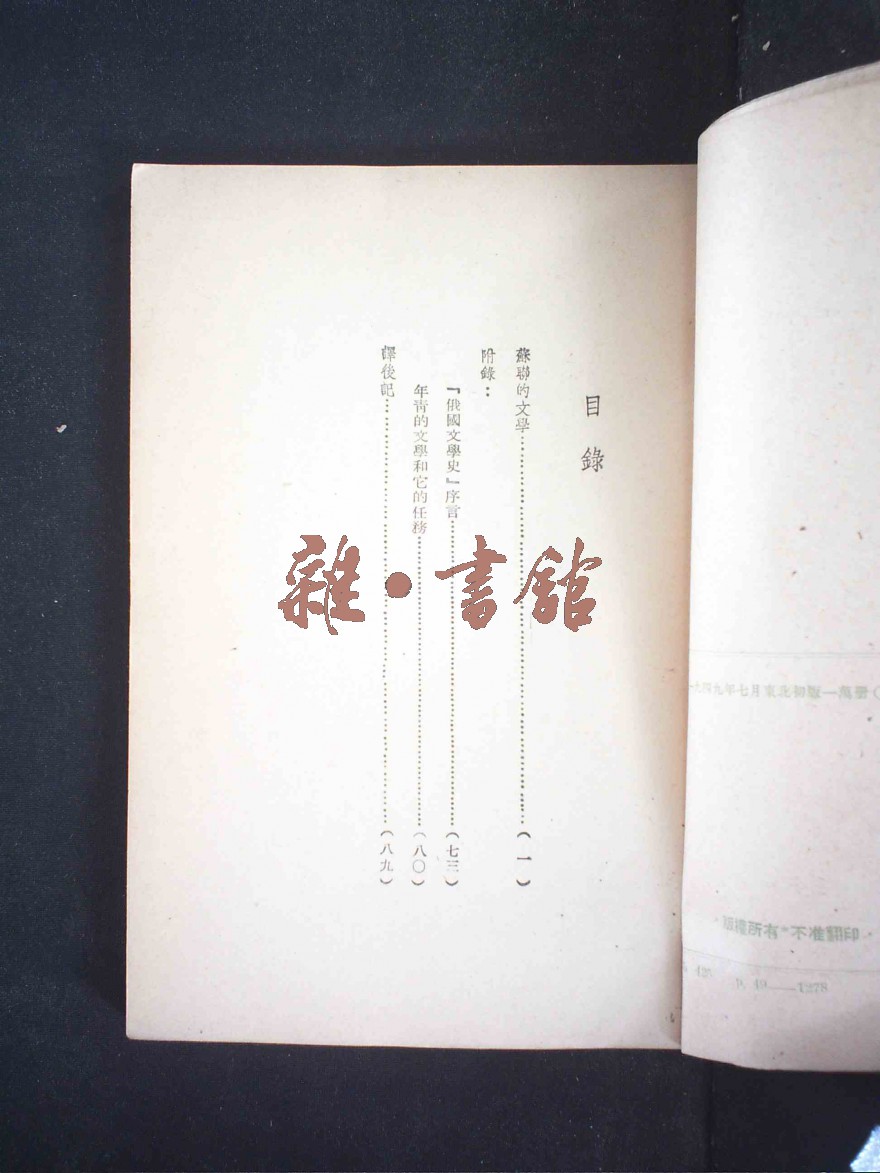 目錄
蘇聯的文學……(一)
附錄：
『俄國文學史』序言……(七三)
年青的文學和它的任務……(八〇)
譯後記……(八九)
雜·書館
一九四九年七月東北初版一萬册
版權所有*不准翻印
P. 49——1278